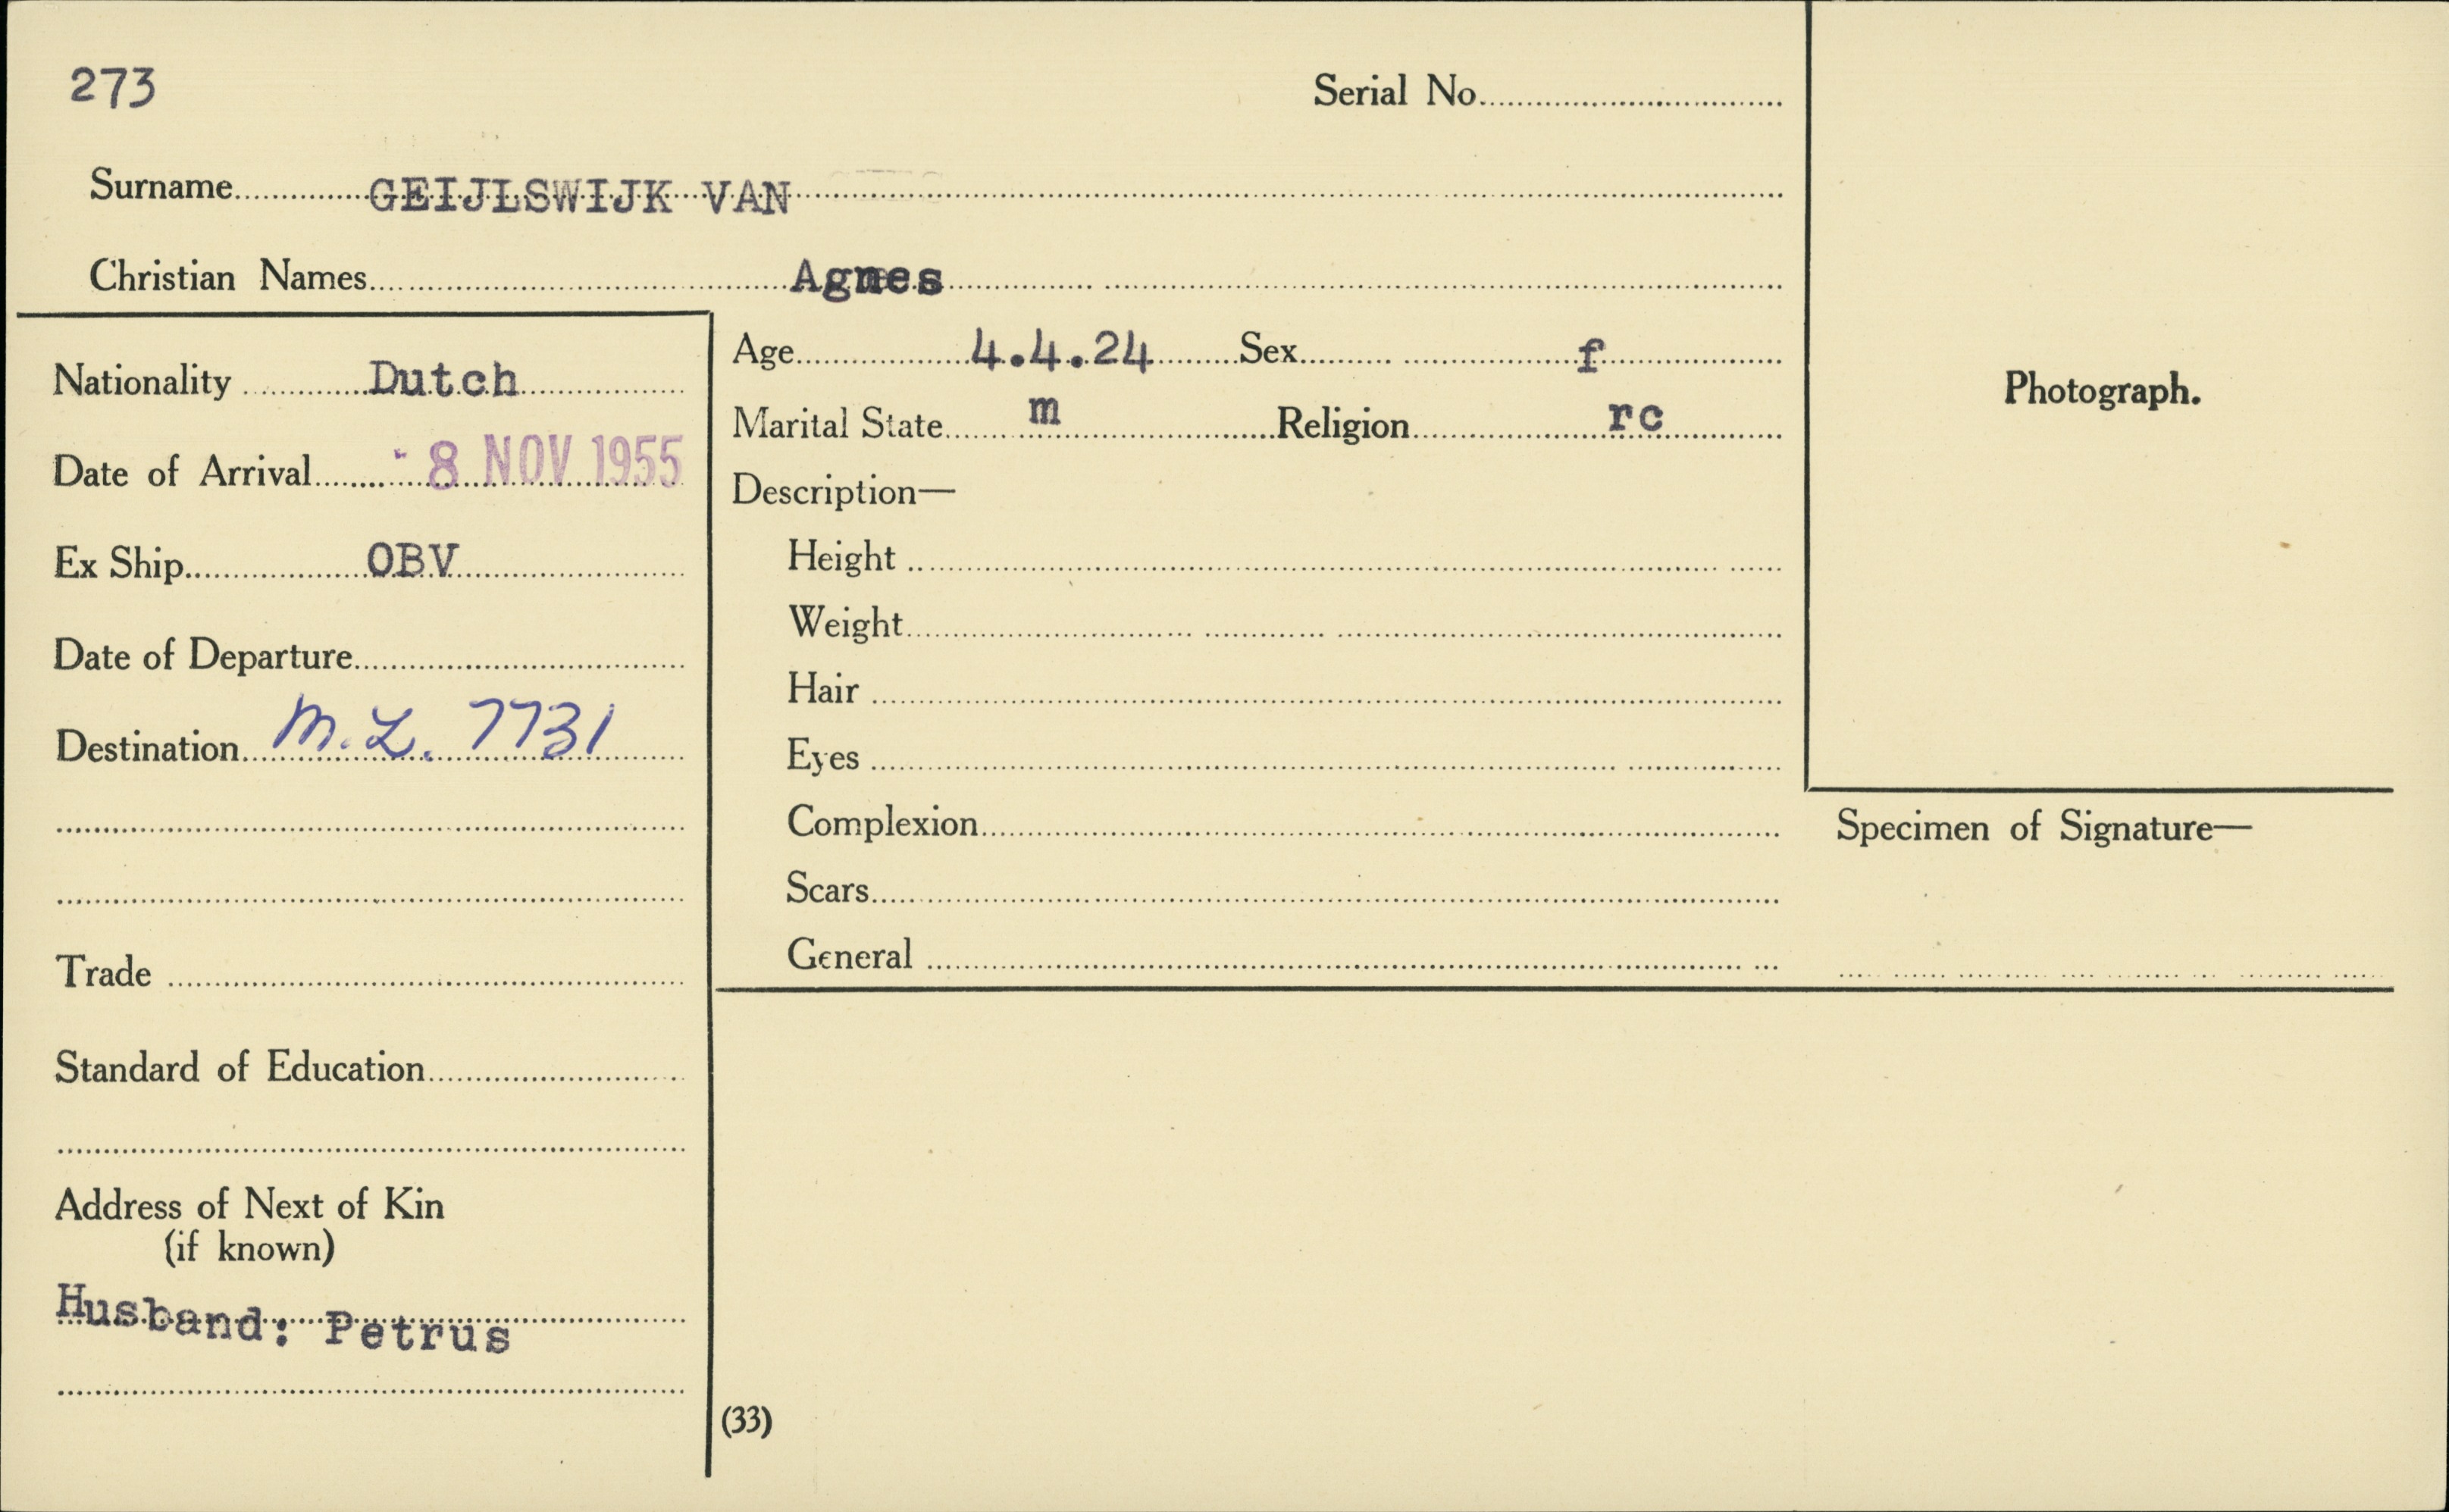 273
Serial No.
Surname GEIJLSWIJK VAN
Christian Names Agnes
Nationality Dutch
Date of Arrival - 8 NOV 1955
Ex Ship OBV
Date of Departure
Destination M.L. 7731
Trade
Standard of Education
Address of Next of Kin
(if known)
Husband: Petrus
Age 4.4.24 Sex f
Marital State m Religion rc
Description—
Height
Weight
Hair
Eyes
Complexion
Scars
General
(33)
Photograph.
Specimen of Signature—